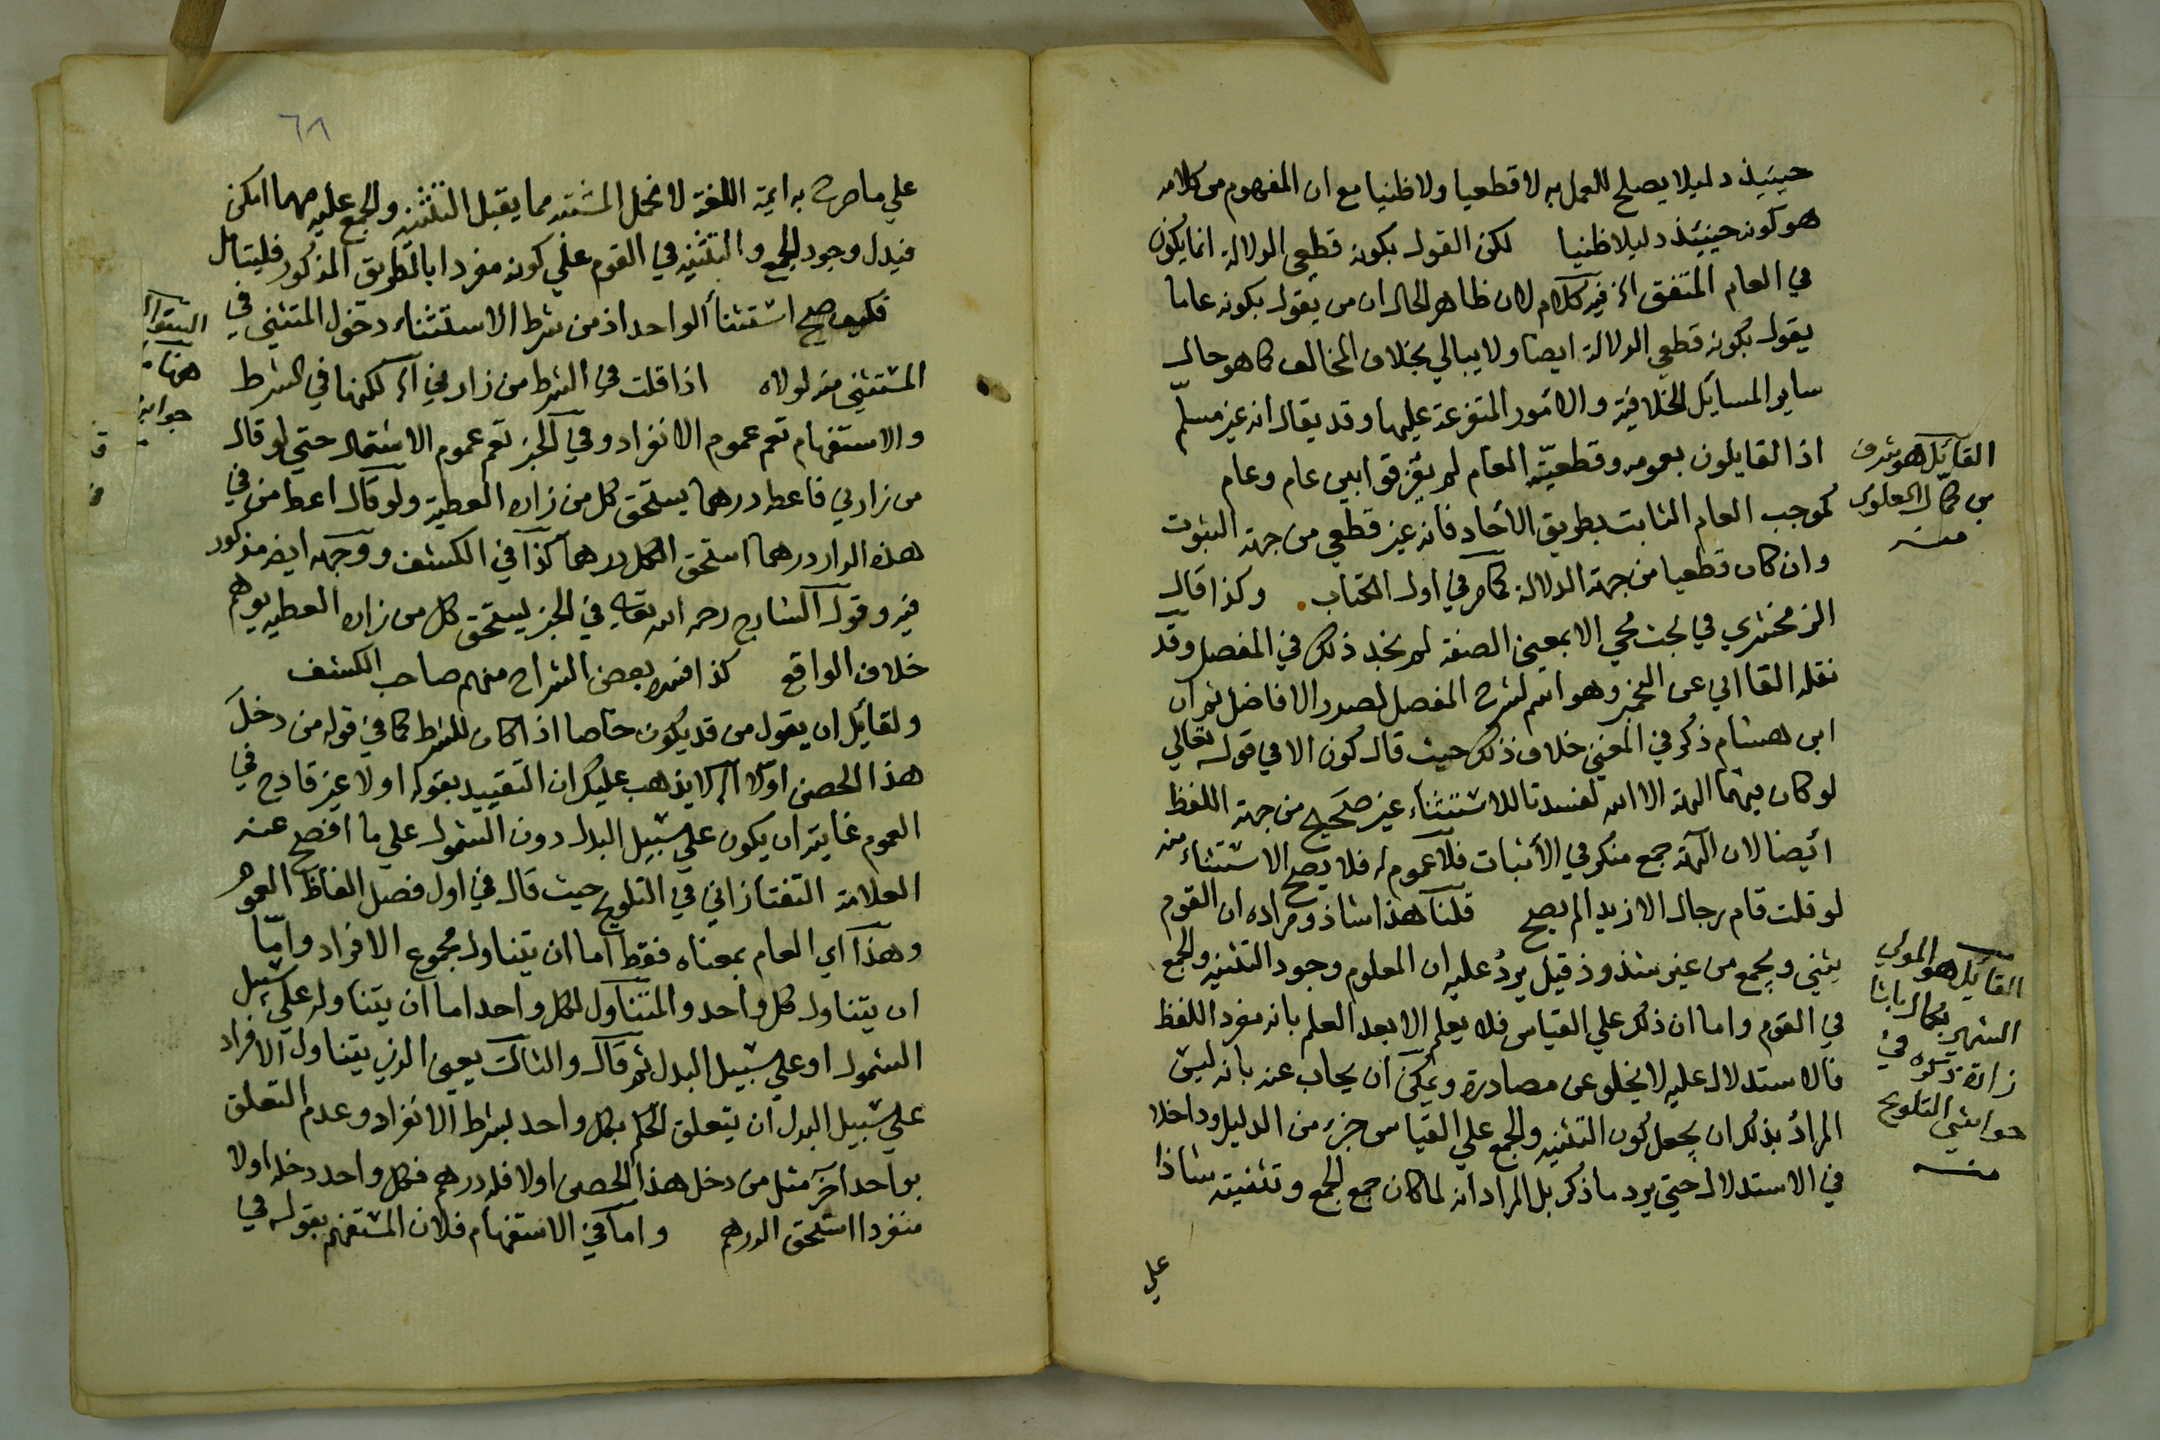 حينيذ دليلا يصلح للعمل به لا قطعيا ولا ظنيا مع ان المفهوم من كلامه
هو كونه حينيئذ دليلا ظنيا لكن القول بكونه قطعي الدلالة انما يكون
في العام المتفق اذ فيه كلام لان ظاهر الحال ان من يقول بكونه عاما
يقول بكونه قطعي الدلالة ايضا ولا يبالي بخلاف المخالف كما هو حال
ساير المسايل الخلافية والامور المتفرعة عليها وقد يقال انه غير مسلّم
اذ القايلون بعمومه وقطعيّة العام لم يفرقوا بين عام وعام
كموجب العام الثابت بطريق الآحاد فانه غير قطعي من جهة الثبوت
وان كان قطعيا من جهة الدلالة كما مر في اول الكتاب وكذا قال
الزمخشري في بحث مجي الا بمعني الصفة لم نجد ذلك في المفصل وقد
نقله القاآني عن المخبر وهو اسم لشرح المفصل لصدر الافاضل ثم ان
ابن هشام ذكر في المغني خلاف ذلك حيث قال كون الا في قوله تعالي
لو كان فيهما الهة الا الله لفسدتا للاستثناء غير صحيح من جهة اللفظ
ايضا لان آلهة جمع منكر في الاثبات فلا عموم له فلا يصح الاستثناء منه
لو قلت قام رجال الا زيدا لم يصح قلنا هذا شاذ ومراده ان القوم
يثني ويجمع من غير شذوذ قيل يردُ عليه ان المعلوم وجود التثنيه والجمع
في القوم واما ان ذلك علي القياس فلا يعلم الا بعد العلم بانه مفرد اللفظ
فالاستدلال عليه لا يخلو عن مصادرة ويمكن ان يجاب عنه بانه ليس
المرادُ بذلك ان يجعل كون التثنيه والجمع علي القياس جزء من الدليل وداخلا
في الاستدلال حتي يرد ما ذكر بل المراد انه لما كان جمع الجمع وتثنيته شاذا
علي
القايل هو شرف
بن كمال العلوي
منه
القايل هو المولي
الشهير بكمال باشا
زاده ذكره في
حواشي التلويح
منه
٦٨
علي ما صرح به ايمة اللغة لا نحمل المشتبه مما يقبل التثنيه والجمع عليه مهما امكن
فيدل وجود الجمع والتثنيه في القوم علي كونه مفردا بالطريق المذكور فليتامل
فكيف صح استثنأ الواحد اذ من شرط الاستثناء دخول المتثني في
المستثني منه لولاه اذا قلت في الشرط من زارني آه لكنها في الشرط
والاستفهام تعم عموم الانفراد وفي الخبر تعم عموم الاشتمال حتي لو قال
من زارني فاعطه درهما يستحق كل من زاره العطية ولو قال اعط من في
هذه الدار درهما استحق الكل درهما كذا في الكشف ووجهه ايضا مذكور
فيه وقول الشارح رحمه الله تعالي في الخبر يستحق كل من زاره العطيه يوهم
خلاف الواقع كذا فسره بعض الشراح منهم صاحب الكشف
ولقايل ان يقول من قد يكون خاصا اذا كان للشرط كما في قوله من دخل
هذا الحصن اولا آه لا يذهب عليك ان التقييد بقوله اولا غير قادح في
العموم غايته ان يكون علي سبيل البدل دون الشمول علي ما افصح عنه
العلامة التفتازاني في التلويح حيث قال في اول فصل الفاظ العموم
وهذا اي العام بمعناه فقط اما ان يتناول مجموع الافراد وامّا
ان يتناول كل واحد والمتناول لكل واحد اما ان يتناوله علي سبيل
الشمول او علي سبيل البدل ثم قال والثالث يعني الذي يتناول الافراد
علي سبيل البدل ان يتعلق الحكم بكل واحد بشرط الانفراد وعدم التعلق
بواحد آخر مثل من دخل هذا الحصن اولا فله درهم فكل واحد دخله اولا
منفردا استحق الدرهم واما في الاستفهام فلان المستفهم بقوله في
السؤال
هونا
جوابه